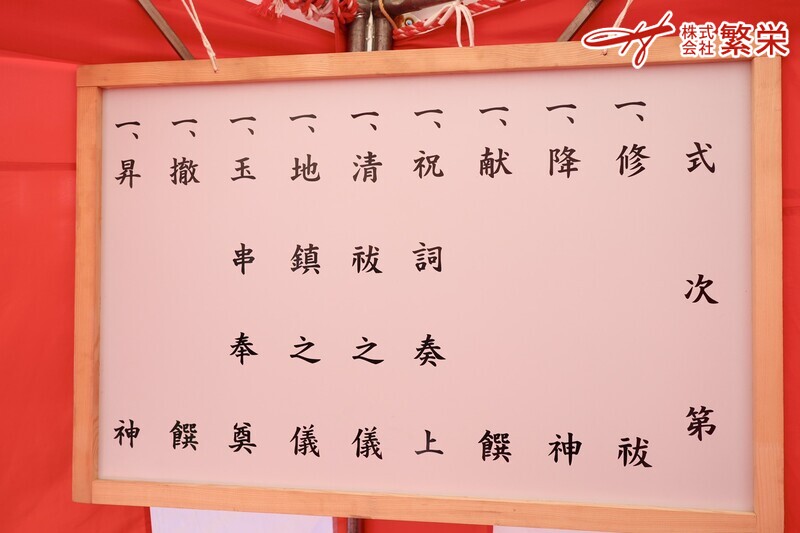 株式会社繁栄
式次第
一、修祓
一、降神
一、献饌
一、祝詞奏上
一、清祓之儀
一、地鎮之儀
一、玉串奉奠
一、撤饌
一、昇神